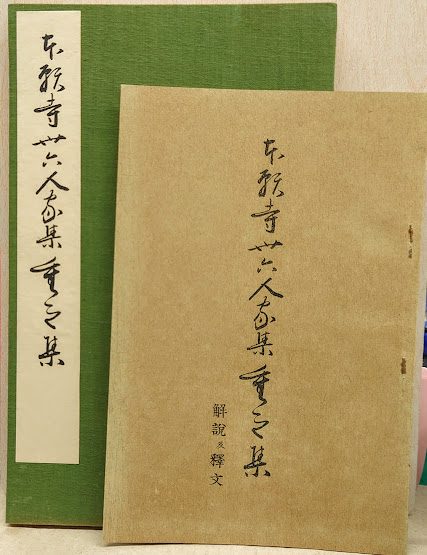 本願寺卅六人家集重之集
本願寺卅六人家集重之集
解說及釋文